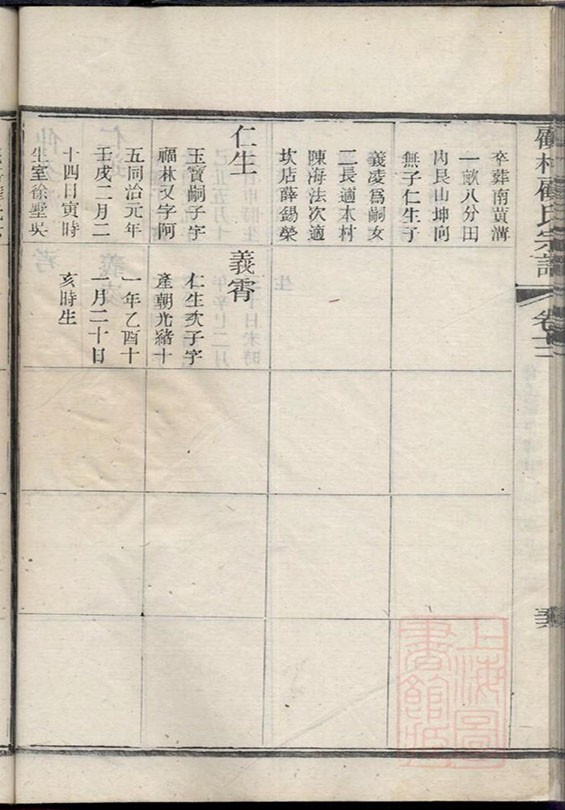 顧村顧氏宗譜
卷十二
卒葬南黄溝
一畝八分田
内艮山坤向
無子仁生子
義凌爲嗣女
二長適本村
陳海法次適
坎店薛錫榮
仁生
玉寳嗣子字
福林又字阿
五同治元年
壬戌二月二
十四日寅時
生室徐墅吳
義霄
仁生次子字
產朝光緒十
一年乙酉十
一月二十日
亥時生
上海圖
書館藏